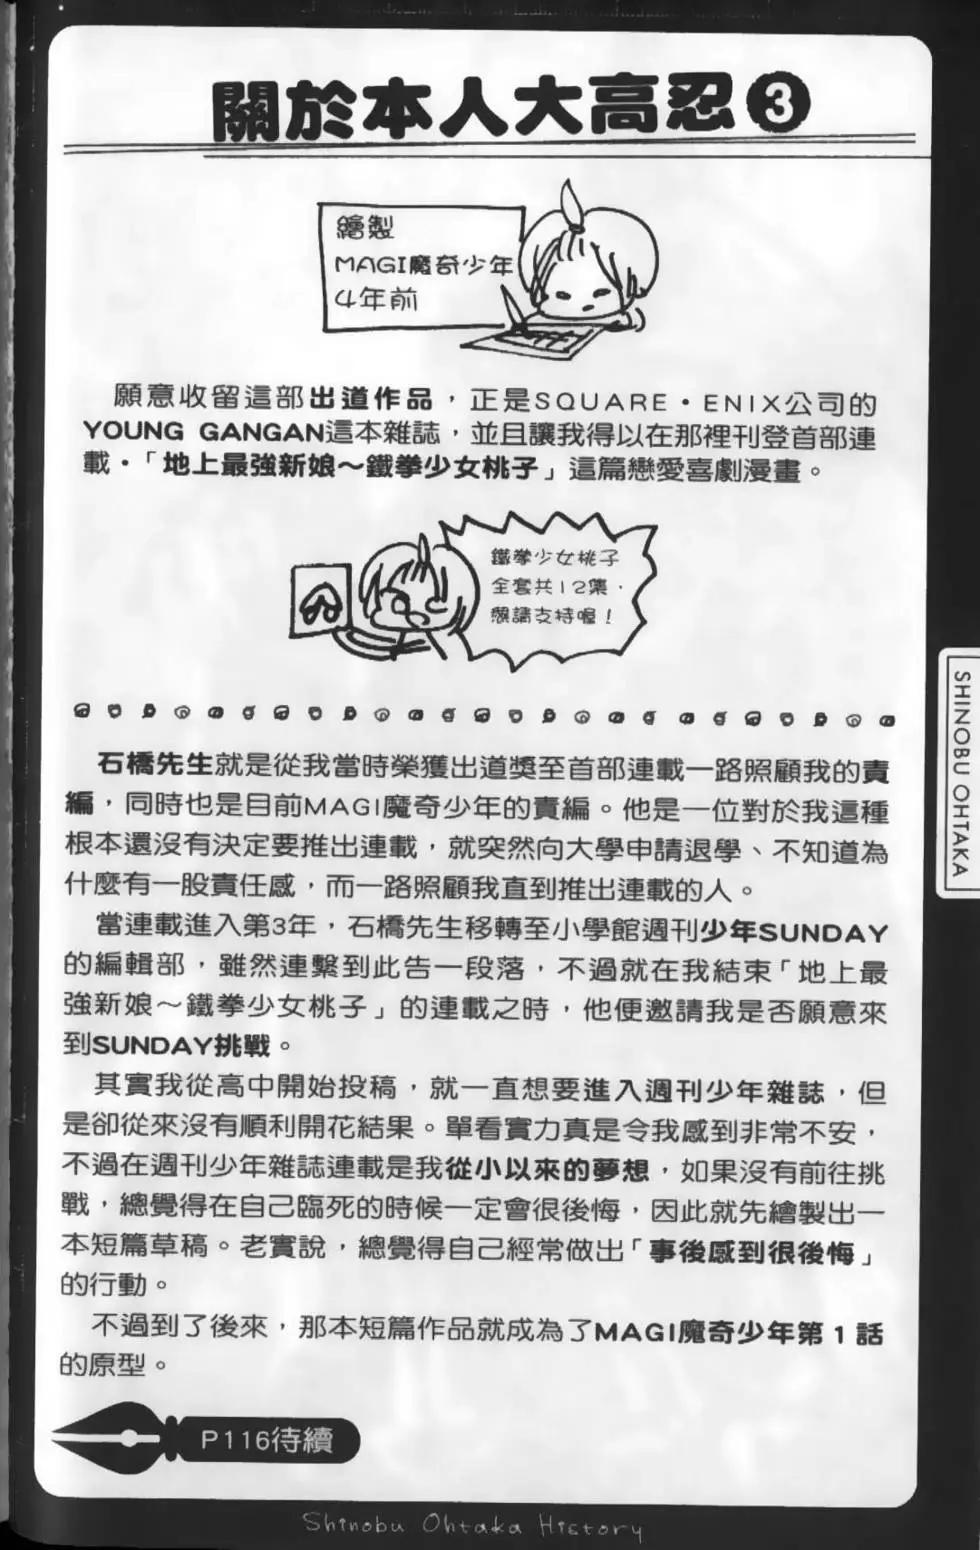 關於本人大高忍❸
繪製
MAGI魔奇少年
4年前
願意收留這部出道作品，正是SQUARE・ENIX公司的
YOUNG GANGAN這本雜誌，並且讓我得以在那裡刊登首部連
載・「地上最強新娘～鐵拳少女桃子」這篇戀愛喜劇漫畫。
鐵拳少女桃子
全套共12集．
懇請支持喔！
石橋先生就是從我當時榮獲出道獎至首部連載一路照顧我的責
編，同時也是目前MAGI魔奇少年的責編。他是一位對於我這種
根本還沒有決定要推出連載，就突然向大學申請退學、不知道為
什麼有一股責任感，而一路照顧我直到推出連載的人。
當連載進入第3年，石橋先生移轉至小學館週刊少年SUNDAY
的編輯部，雖然連繫到此告一段落，不過就在我結束「地上最
強新娘～鐵拳少女桃子」的連載之時，他便邀請我是否願意來
到SUNDAY挑戰。
其實我從高中開始投稿，就一直想要進入週刊少年雜誌，但
是卻從來沒有順利開花結果。單看實力真是令我感到非常不安，
不過在週刊少年雜誌連載是我從小以來的夢想，如果沒有前往挑
戰，總覺得在自己臨死的時候一定會很後悔，因此就先繪製出一
本短篇草稿。老實說，總覺得自己經常做出「事後感到很後悔」
的行動。
不過到了後來，那本短篇作品就成為了MAGI魔奇少年第1話
的原型。
P116待續
SHINOBU OHTAKA
Shinobu Ohtaka History